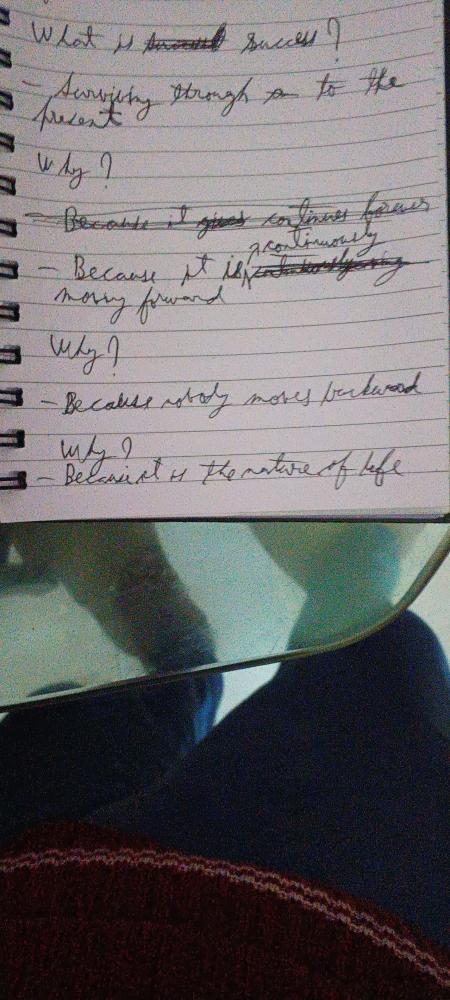 What is success?
- Surviving through to the
present
Why?
- Because it gives continues forever
continuously
- Because it is
moving forward
Why?
- Because nobody moves backward
Why?
- Because it is the nature of life